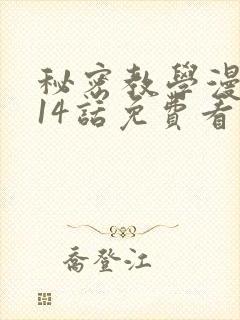 秘密教學漫
14話免費看
喬登江